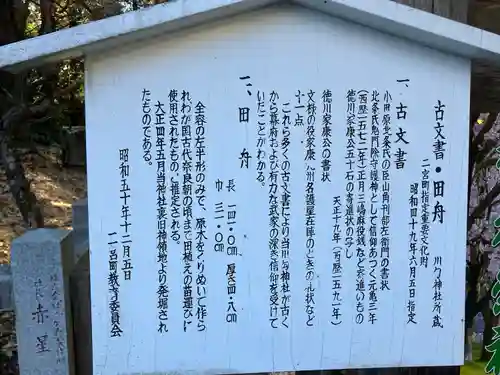 古文書・田舟
川勾神社所蔵
二宮町指定重要文化財
昭和四十九年六月五日指定
一、古文書
小田原北条氏の臣山角刑部左衛門の書状
北条氏鬼門除守護神として信仰あつく元亀三年
（西歴一五七二年）正月三嶋麻役銭など永進いもの
徳川家康公五十石の寄進状の写し
天正十九年（西歴一五九一年）
徳川家康公の書状
文禄の役家康、州名護屋在陣のときの礼状など
十一点
これら多くの古文書により当川勾神社が古く
から幕府および有力な武家の深き信仰を受けて
いたことがわかる。
一、田舟
長一四一・〇cm 厚さ四・八cm
巾三一・〇cm
全容の左半形のみで、原木をくりぬいて作ら
れわが国古代奈良朝の頃まで田植えの苗運びに
使用されたものと推定される。
大正四年五月当神社裏旧神領地より発掘され
たものである。
昭和五十年十二月五日
二宮町教育委員会
赤星